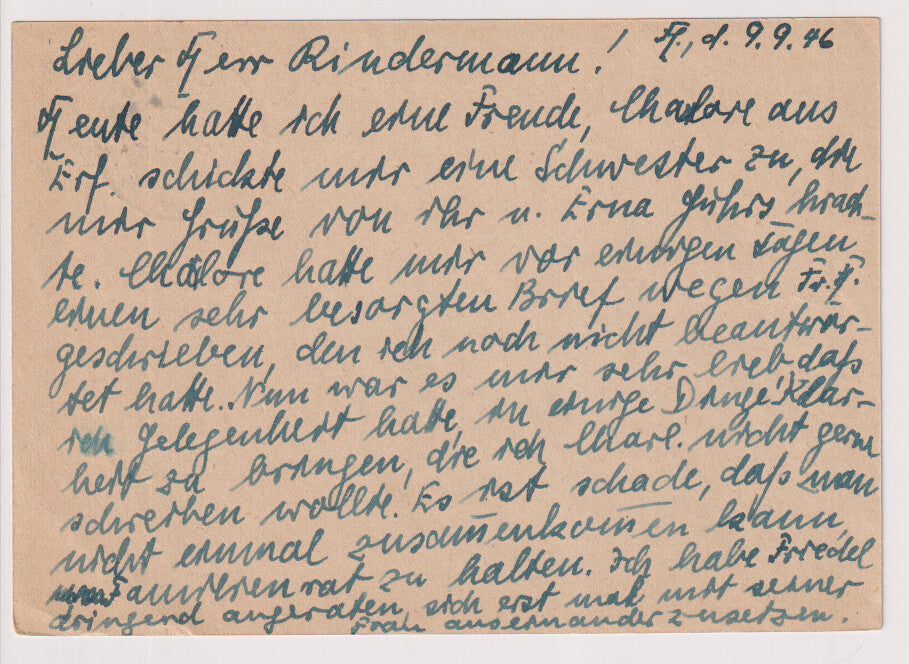 Lieber Herr Rindermann! Ff., d. 9.9.46
Heute hatte ich eine Freude, Chalore aus
Erf. schickte mir eine Schwester zu, die
mir Grüße von ihr u. Erna Guhrs brach-
te. Chalore hatte mir vor einigen Tagen
einen sehr besorgten Brief wegen Fr. H.
geschrieben, den ich noch nicht beantwor-
tet hatte. Nun war es mir sehr lieb daß
ich Gelegenheit hatte, in einige Dinge Klar-
heit zu bringen, die ich Charl. nicht gerne
schreiben wollte. Es ist schade, daß man
nicht einmal zusam̅enkom̅en kann,
Familienrat zu halten. Ich habe Friedel
dringend angeraten, sich erst mal mit seiner
Frau auseinander zusetzen.